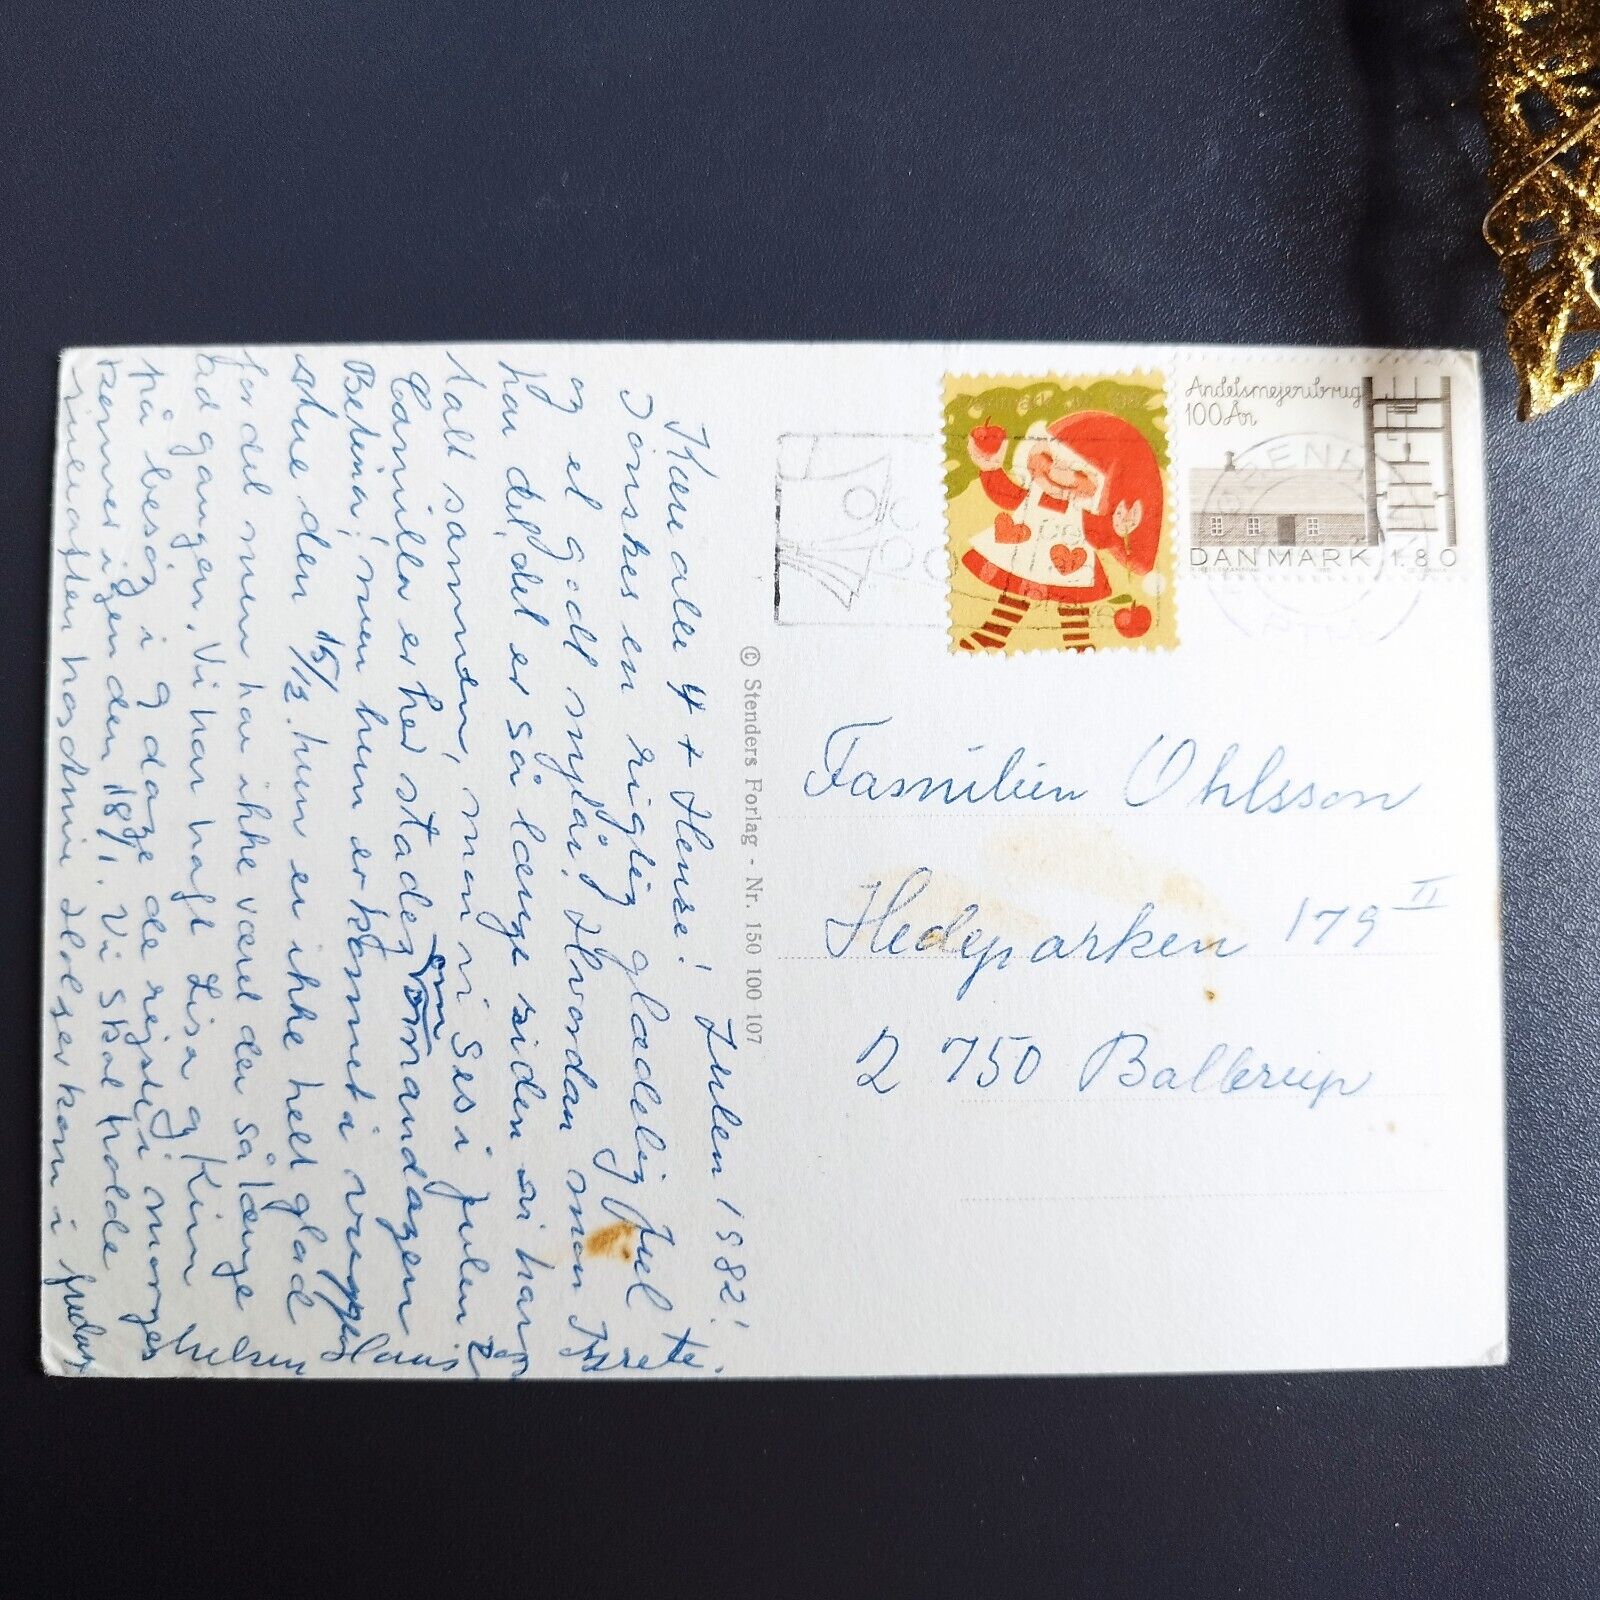 Julen 1982!
Kære alle 4 + Hense!
Jønskes en rigtig glædelig Jul
og et godt nytår! Hvordan mon I
har det, det er så længe siden vi har
talt sammen, mon vi ses i Julen?
Camilla er her stadig om mandagen
Betina, men hun er kommet i vugge
stue den 15/12. hun er ikke helt glad
for det men har ikke været der så længe
ad gangen. Vi har haft Lisa og Kim
på besøg i 9 dage de rejste i morges
kommer igen den 18/1. Vi skal holde
juleaften hos
kom i fredags
© Stenders Forlag - Nr. 150 100 107
Andelsmejeribrug
100 År
DANMARK 1.80
Familien Ohlsson
Hedeparken 179 II
2750 Ballerup